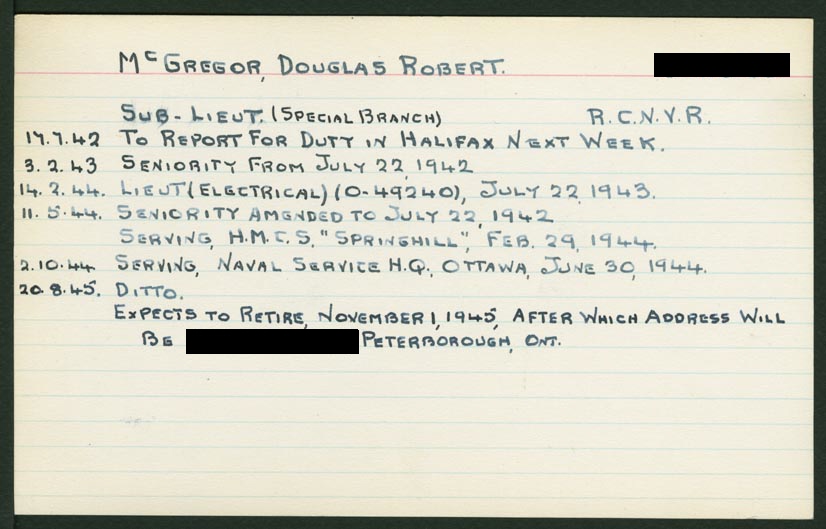 McGREGOR, DOUGLAS ROBERT.
SUB-LIEUT. (SPECIAL BRANCH) R.C.N.V.R.
17.7.42 TO REPORT FOR DUTY IN HALIFAX NEXT WEEK.
3.2.43 SENIORITY FROM JULY 22, 1942
14.2.44. LIEUT (ELECTRICAL) (O-49240), JULY 22, 1943.
11.5.44. SENIORITY AMENDED TO JULY 22, 1942
SERVING, H.M.C.S. "SPRINGHILL", FEB. 29, 1944.
2.10.44. SERVING, NAVAL SERVICE H.Q. OTTAWA, JUNE 30, 1944.
20.8.45. DITTO.
EXPECTS TO RETIRE, NOVEMBER 1, 1945, AFTER WHICH ADDRESS WILL
BE PETERBOROUGH, ONT.